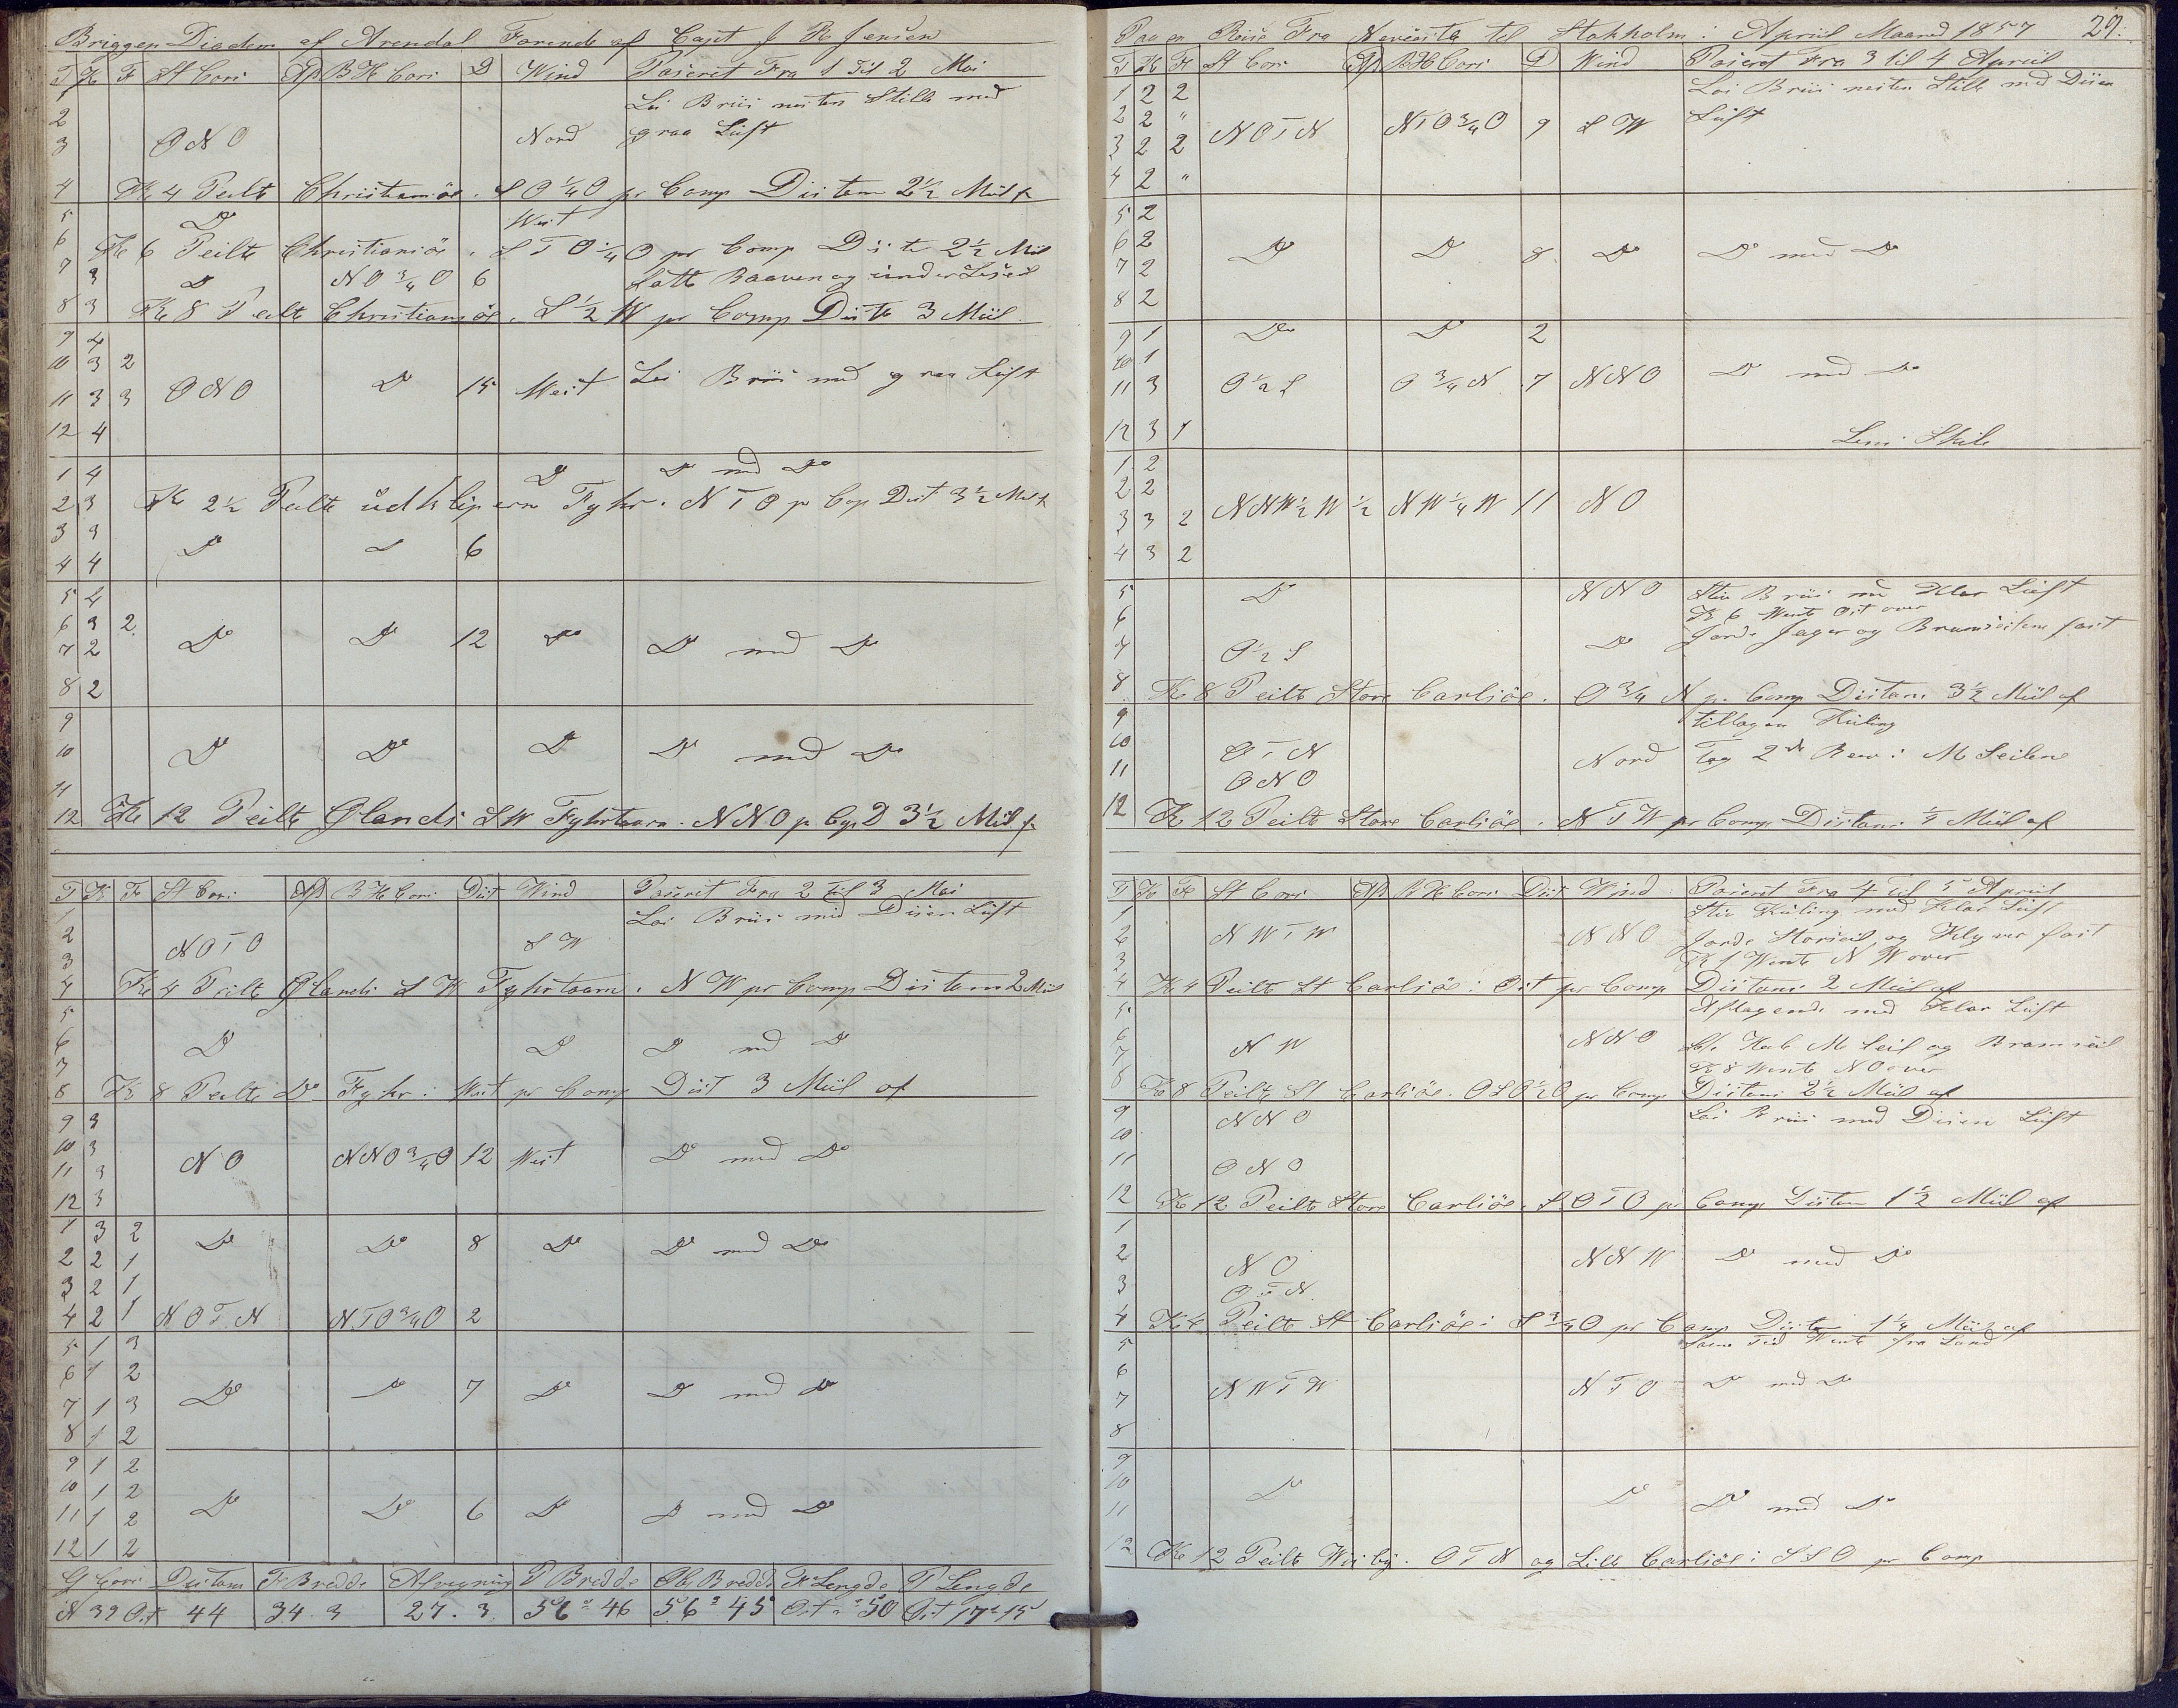 Briggen Diadem af Arendal Førende af Capt J H Jensen
T K F St Cors Afd B H Cors D Wind Paseret Fra 1 Til 2 Mai
1 Lei Briis nesten Stille med
2
3 O N O Nord graa Luft
4 Kl 4 Peilte Christiansöe i S O ¼ O pr Comp Distans 2½ Miil f
5 Do West
6 Kl 6 Peilte Christiansöe i S T O ¼ O pr Comp Dist 2½ Miil
7 3 Do N O ¾ O 6 Satte Baaven og underLeseil
8 3 Kl 8 Peilte Christiansöe i S ½ W pr Comp Diste 3 Miil
9 4
10 3 2
11 3 3 O N O Do 15 West Lei Briis med graa Luft
12 4
1 4 Do Do med Do
2 3 Kl 2½ Peilte udklipern Fyhr i N T O pr Cop Dist 3½ Miil f
3 3
4 4 Do Do 6
5 4
6 3 2
7 2 Do Do 12 Do Do med Do
8 2
9
10 Do Do Do Do med Do
11
12 Kl 12 Peilte Ølands S W Fyhrtaarn i N N O pr Cop D 3½ Miil f
T K F St Cors Afd B H Cors Dist Wind Paseret Fra 2 til 3 Mai
1 Lei Briis med Disen Luft
2 N O T O S W
3
4 Kl 4 Peilte Ølands S W Fyhrtaarn i N W pr Comp Distans 2 Miil
5
6 Do Do Do med Do
7
8 Kl 8 Peilte Do Fyhr i West pr Comp Dist 3 Miil af
9 3
10 3
11 3 N O N N O ¾ O 12 West Do med Do
12 3
1 3 2 Do Do 8 Do Do med Do
2 2 1
3 2 1
4 2 1 N O T N N T O ¾ O 2
5 1 3
6 1 2
7 1 3 Do Do 7 Do Do med Do
8 1 2
9 1 2
10 1 2
11 1 2 Do Do 6 Do Do med Do
12 1 2
G Cors Distans Fr Bredde Afvigning P Bredde Obs Bredde Fr Lengde P Lengde
N 39 Ost 44 34.3 27.3 56° 46 56° 45 Ost ° 50 Ost 17° 15
Paa en Reise Fra til Stokholm i April Maaned 1857 29.
T K F St Cors Afd B H Cors D Wind Paseret Fra 3 til 4 April
1 2 2 Lei Briis nesten Stille med Disen
2 2 " N O T N N T O ¾ O 9 S W Luft
3 2 2
4 2 "
5 2
6 2 Do Do 8 Do Do med Do
7 2
8 2
9 1 Do Do 2
10 1
11 3 O ½ S O ¾ N 7 N N O Do med Do
12 3 1 Seile
1 2
2 2 N N W ½ W ½ N W ¼ W 11 N O
3 3 2
4 3 2
5 Do N N O Stiv Briis med Klar Luft
6 Kl 6 Wente Ost over
7 O ½ S Do Jorde Jager og Bramseilene fast
8 Kl 8 Peilte Store Carlsöe i O ¾ N pr Comp Distans 3½ Miil af
9 tillagen Kuling
10 O T N Nord Tog 2de Rev i M Seilene
11 O N O
12 Kl 12 Peilte Store Carlsöe i N T W pr Comp Distans ½ Miil af
T K F St Cors Afd B H Cors Dist Wind Paseret Fra 4 Til 5 April
1 Stiv Kuling med Klar Luft
2 N W T W N N O Jorde Storseil og Klyver fast
3 Kl 1 Wente N W over
4 Kl 4 Peilte St Carlsöe i Ost pr Comp Distans 2 Miil af
5 Aftagende med Klar Luft
6 N W N N O M Seil og Bramseil
7 Kl 8 Wente N O over
8 Kl 8 Peilte St Carlsöe i O S O ½ O pr Comp Distans 2½ Miil af
9 N N O Lei Briis med Disen Luft
10
11 O N O
12 Kl 12 Peilte Store Carlsöe i S O T O pr Comp Distans 1½ Miil af
1
2 N O N N W Do med Do
3 O T N
4 Kl 4 Peilte St Carlsöe i S ¾ O pr Comp Distans 1¼ Miil af
5 Same Tid Wente fra Land
6
7 N W T W N T O Do med Do
8
9
10 Do Do Do med Do
11
12 Kl 12 Peilte Wisby i O T N og Lille Carlsöe i S S O pr Comp